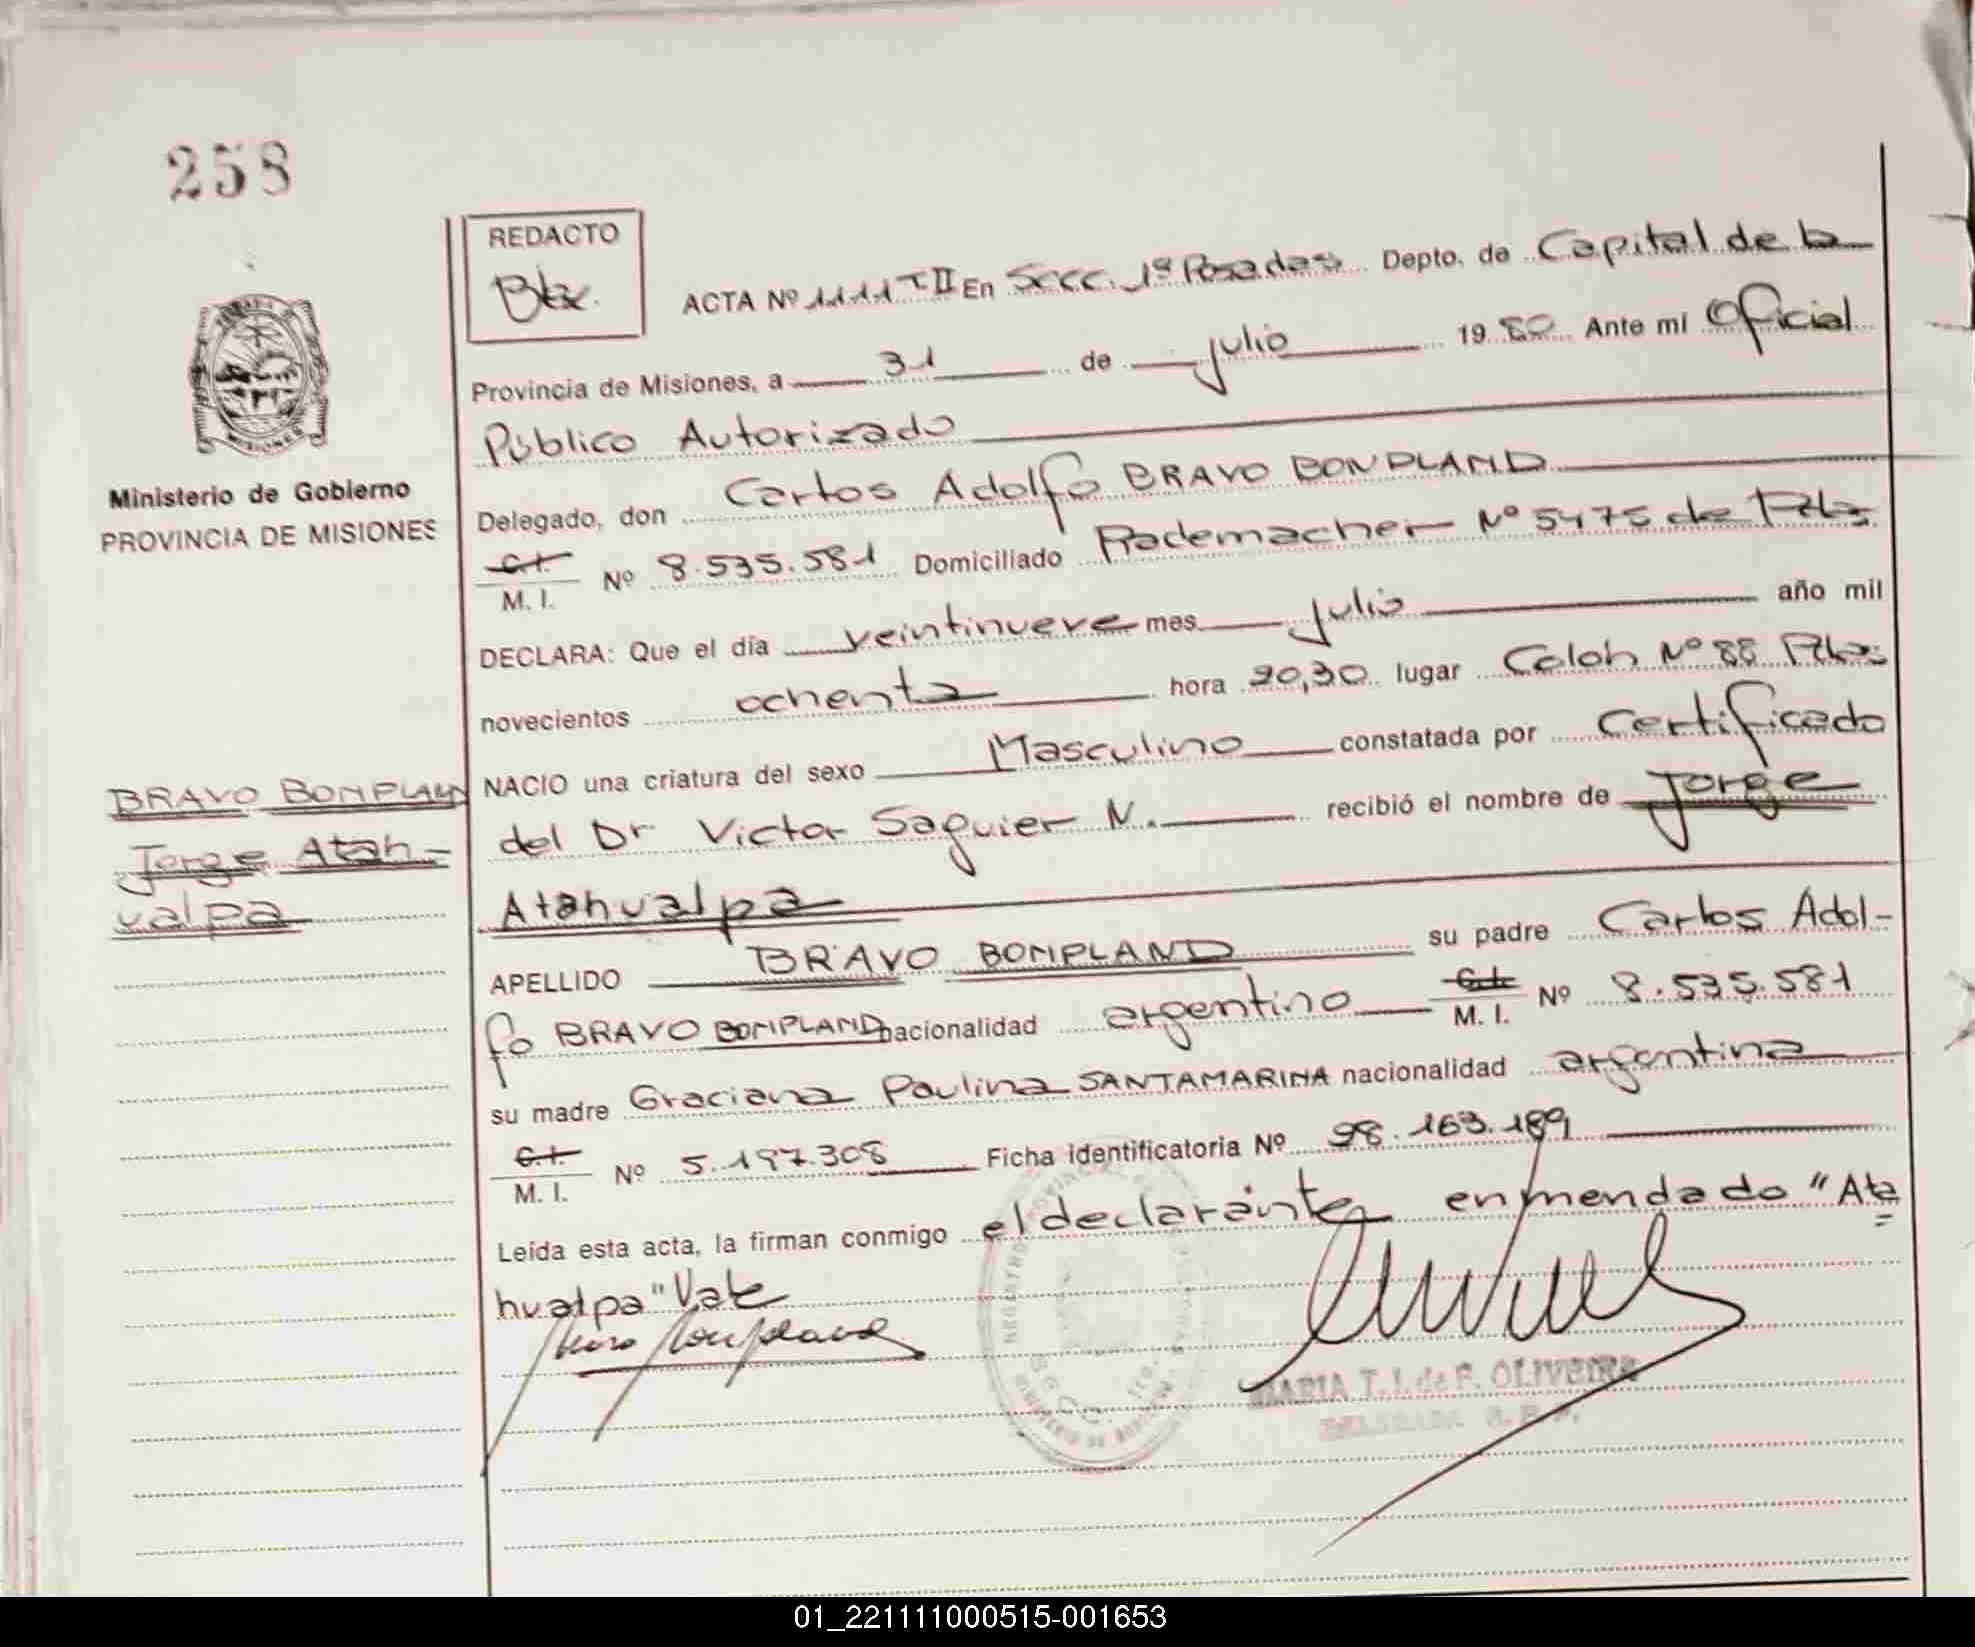 258
REDACTO
ACTA Nº 1111 T II En Secc. 1º Posadas Depto. de Capital de la
Provincia de Misiones, a 31 de julio 1980 Ante mí Oficial
Público Autorizado
Ministerio de Gobierno
PROVINCIA DE MISIONES
Delegado, don Carlos Adolfo BRAVO BONPLAND
C.I.
M. I. Nº 8.535.581 Domiciliado Rademacher Nº 5475 de Pdas
DECLARA: Que el día veintinueve mes julio año mil
novecientos ochenta hora 20,30 lugar Colón Nº 88 Pdas
NACIO una criatura del sexo Masculino constatada por Certificado
del Dr Victor Saguier N. recibió el nombre de Jorge
Atahualpa
BRAVO BOMPLAND
Jorge Atah-
ualpa
APELLIDO BRAVO BOMPLAND su padre Carlos Adol-
fo BRAVO BOMPLAND nacionalidad argentino M. I. Nº 8.535.581
su madre Graciana Paulina SANTAMARINA nacionalidad argentina
C.I.
M. I. Nº 5.197.308 Ficha identificatoria Nº 98.163.189
Leída esta acta, la firman conmigo el declarante enmendado "Ata
hualpa" Vale
MARIA T. I. de F. OLIVEIRA
01_221111000515-001653